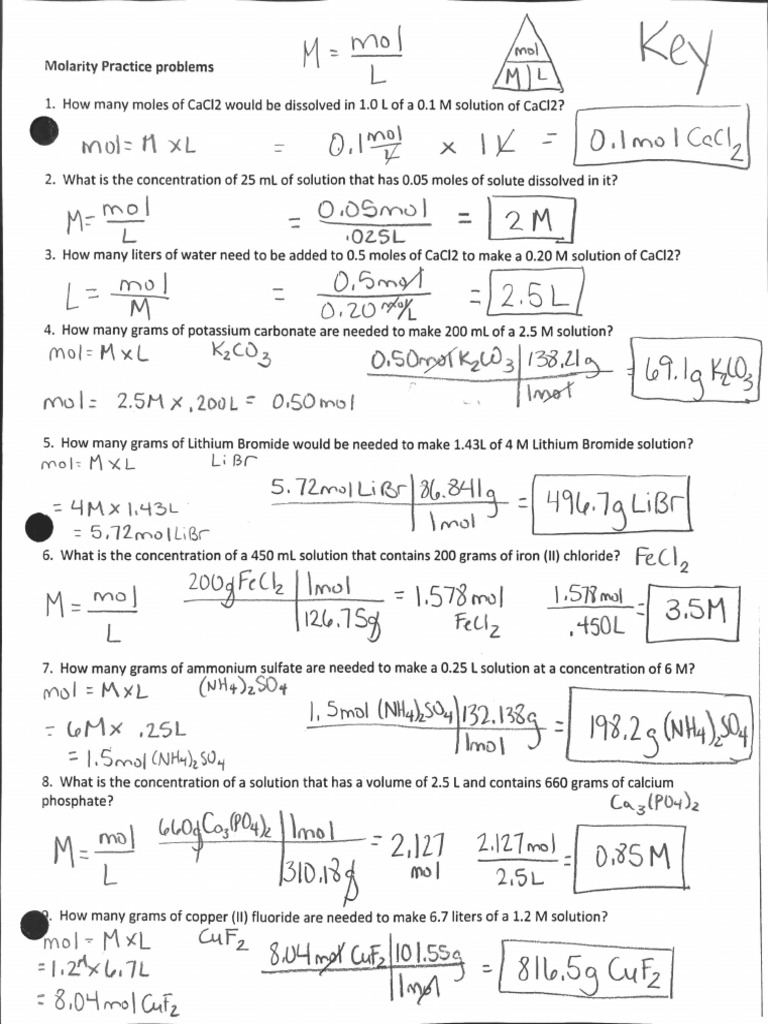 M = mol / L
mol
M | L
Key
Molarity Practice problems
1. How many moles of CaCl2 would be dissolved in 1.0 L of a 0.1 M solution of CaCl2?
mol = M x L = 0.1 mol/L x 1 L = 0.1 mol CaCl2
2. What is the concentration of 25 mL of solution that has 0.05 moles of solute dissolved in it?
M = mol / L = 0.05mol / .025L = 2 M
3. How many liters of water need to be added to 0.5 moles of CaCl2 to make a 0.20 M solution of CaCl2?
L = mol / M = 0.5mol / 0.20 mol/L = 2.5 L
4. How many grams of potassium carbonate are needed to make 200 mL of a 2.5 M solution?
mol = M x L K2CO3 0.50mol K2CO3 | 138.21g / 1mol = 69.1g K2CO3
mol = 2.5M x .200L = 0.50 mol
5. How many grams of Lithium Bromide would be needed to make 1.43L of 4 M Lithium Bromide solution?
mol = M x L LiBr
= 4M x 1.43L 5.72mol LiBr | 86.841g / 1mol = 496.7g LiBr
= 5.72mol LiBr
6. What is the concentration of a 450 mL solution that contains 200 grams of iron (II) chloride? FeCl2
M = mol / L 200g FeCl2 | 1mol / 126.75g = 1.578 mol FeCl2 1.578 mol / .450L = 3.5M
7. How many grams of ammonium sulfate are needed to make a 0.25 L solution at a concentration of 6 M?
mol = M x L (NH4)2SO4
= 6M x .25L 1.5mol (NH4)2SO4 | 132.138g / 1mol = 198.2g (NH4)2SO4
= 1.5mol (NH4)2SO4
8. What is the concentration of a solution that has a volume of 2.5 L and contains 660 grams of calcium
phosphate? Ca3(PO4)2
M = mol / L 660g Ca3(PO4)2 | 1mol / 310.18g = 2.127 mol 2.127 mol / 2.5L = 0.85M
. How many grams of copper (II) fluoride are needed to make 6.7 liters of a 1.2 M solution?
mol = M x L CuF2
= 1.2M x 6.7L 8.04 mol CuF2 | 101.55g / 1mol = 816.5g CuF2
= 8.04 mol CuF2